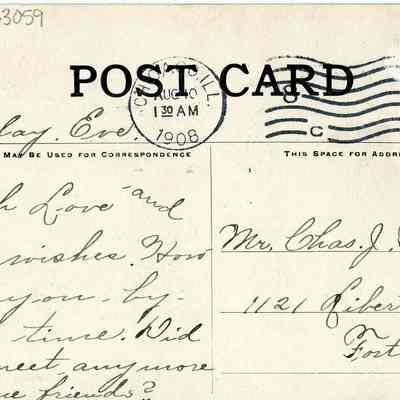 3059
POST CARD
CHICAGO, ILL.
AUG 10
1 30 AM
1908
lay. Eve.
MAY BE USED FOR CORRESPONDENCE
THIS SPACE FOR ADDR
h Love and
wishes. How
you - by -
time. Did
meet any more
friends?
Mr. Chas. J.
1121 Liber
Fort
C